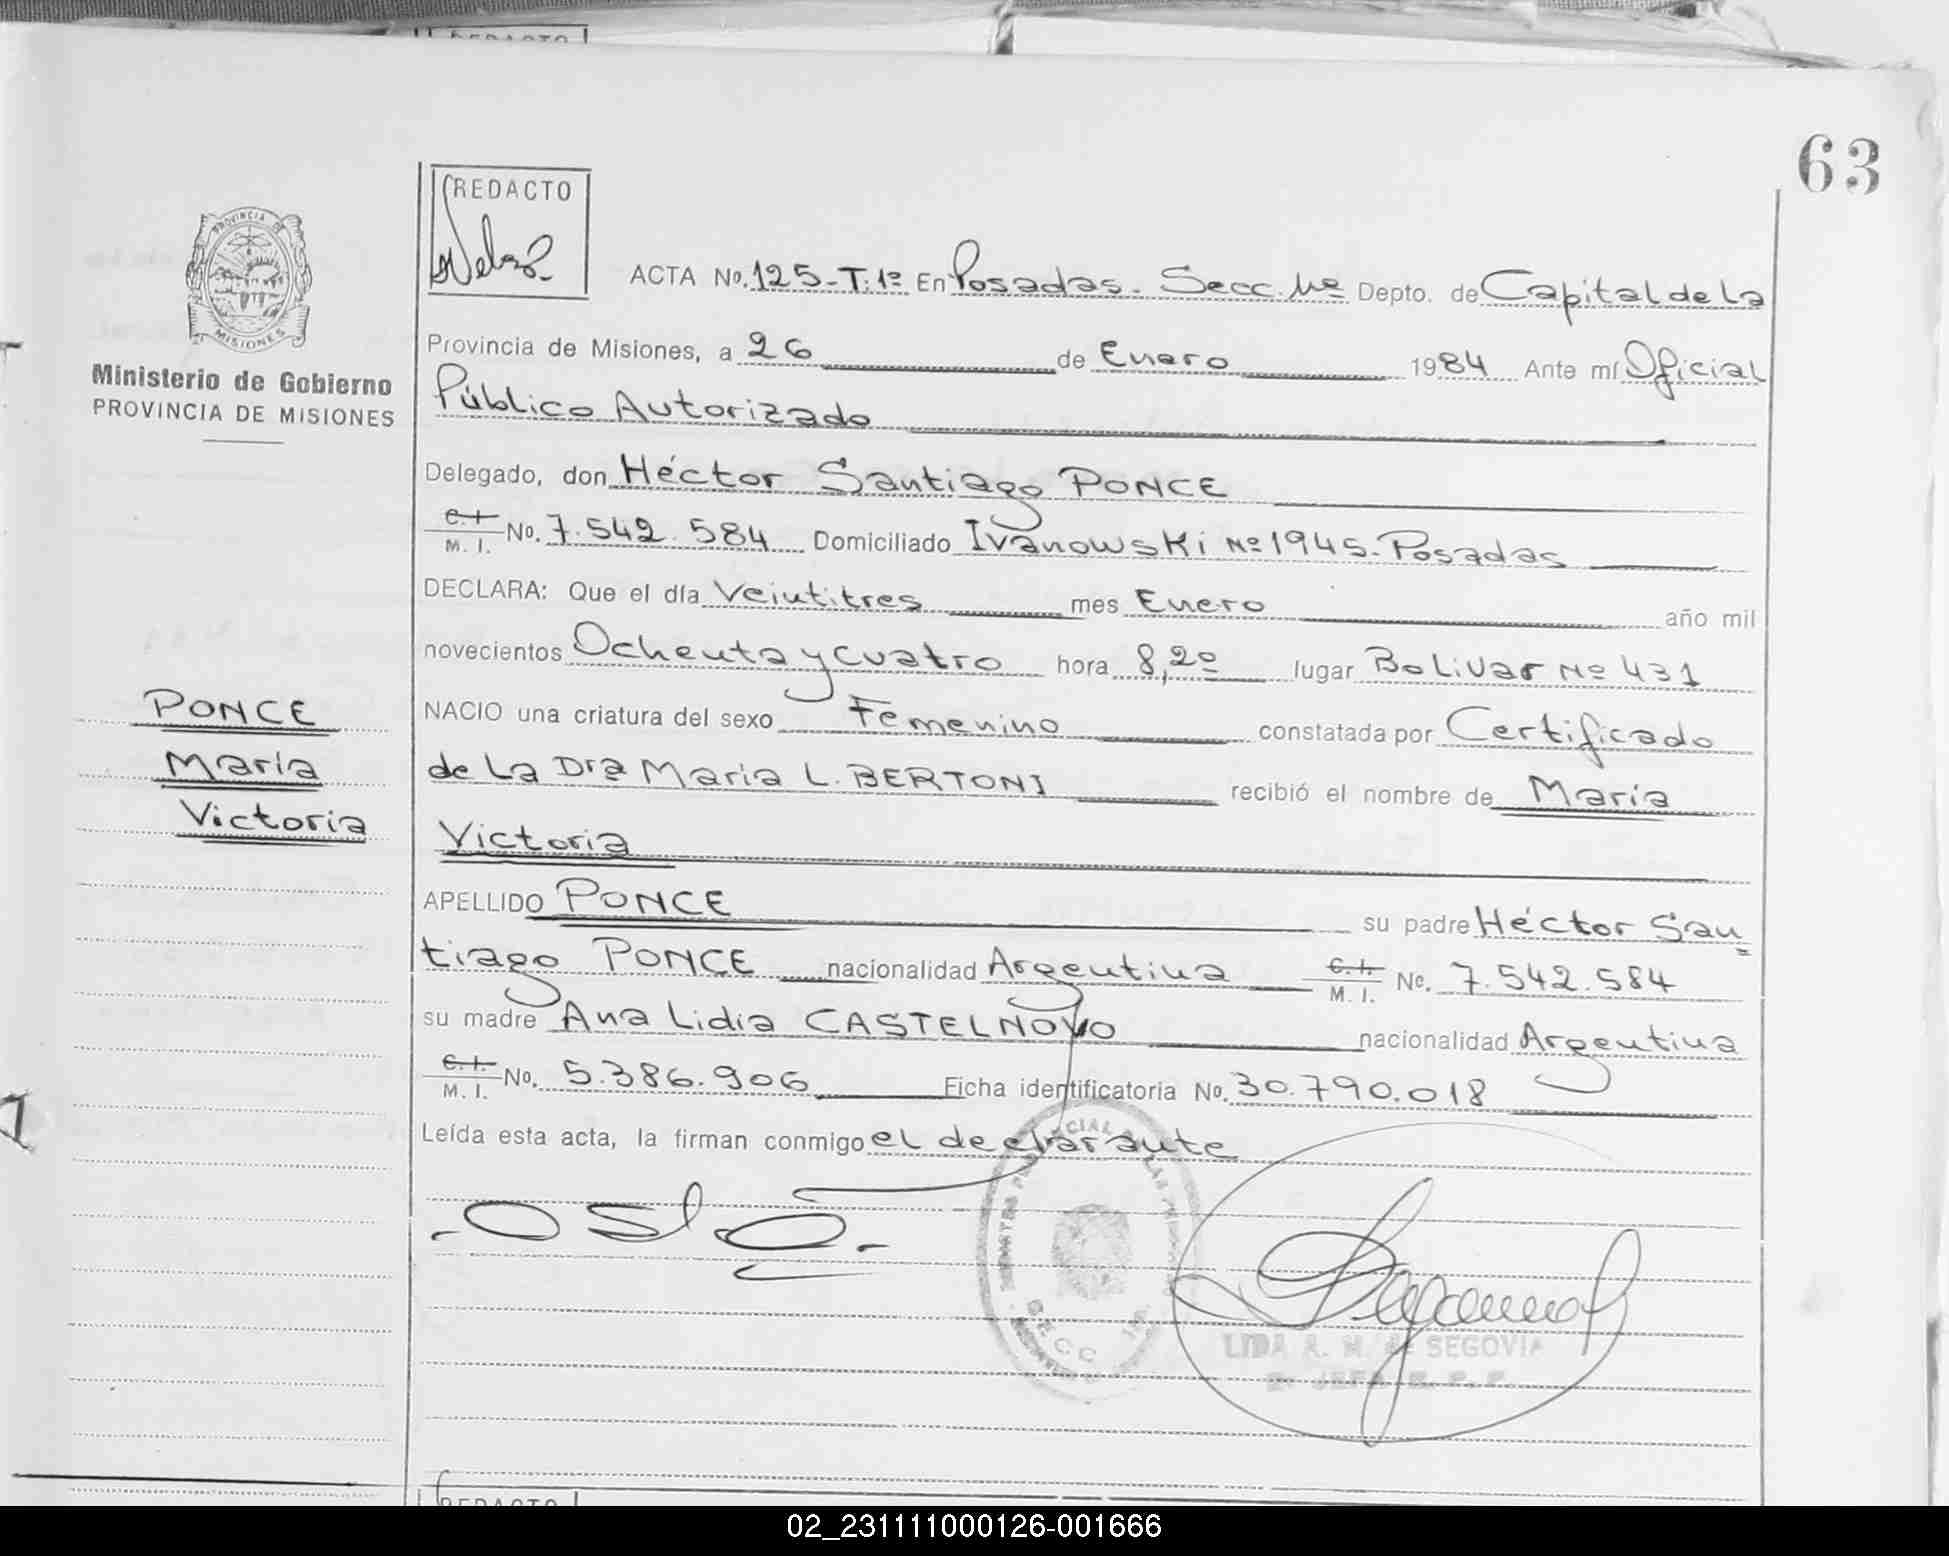 63
REDACTO
PROVINCIA DE
MISIONES
Ministerio de Gobierno
PROVINCIA DE MISIONES
ACTA No. 125-T:1º En Posadas. Secc. 1ª Depto. de Capital de la
Provincia de Misiones, a 26 de Enero 1984 Ante mí Oficial
Público Autorizado
Delegado, don Héctor Santiago PONCE
C.I. M. I. No. 7.542.584 Domiciliado Ivanowski Nº 1945. Posadas
DECLARA: Que el día Veintitres mes Enero año mil
novecientos Ochenta y cuatro hora 8,20 lugar Bolivar Nº 431
NACIO una criatura del sexo Femenino constatada por Certificado
de la Dra Maria L. BERTONI recibió el nombre de María
Victoria
APELLIDO PONCE su padre Héctor San=
tiago PONCE nacionalidad Argentina C.I. M. I. No. 7.542.584
su madre Ana Lidia CASTELNOVO nacionalidad Argentina
C.I. M. I. No. 5.386.906 Ficha identificatoria No. 30.790.018
Leída esta acta, la firman conmigo el declarante
PONCE
María
Victoria
SECC
LIDA A. M. de SEGOVIA
REDACTO
02_231111000126-001666